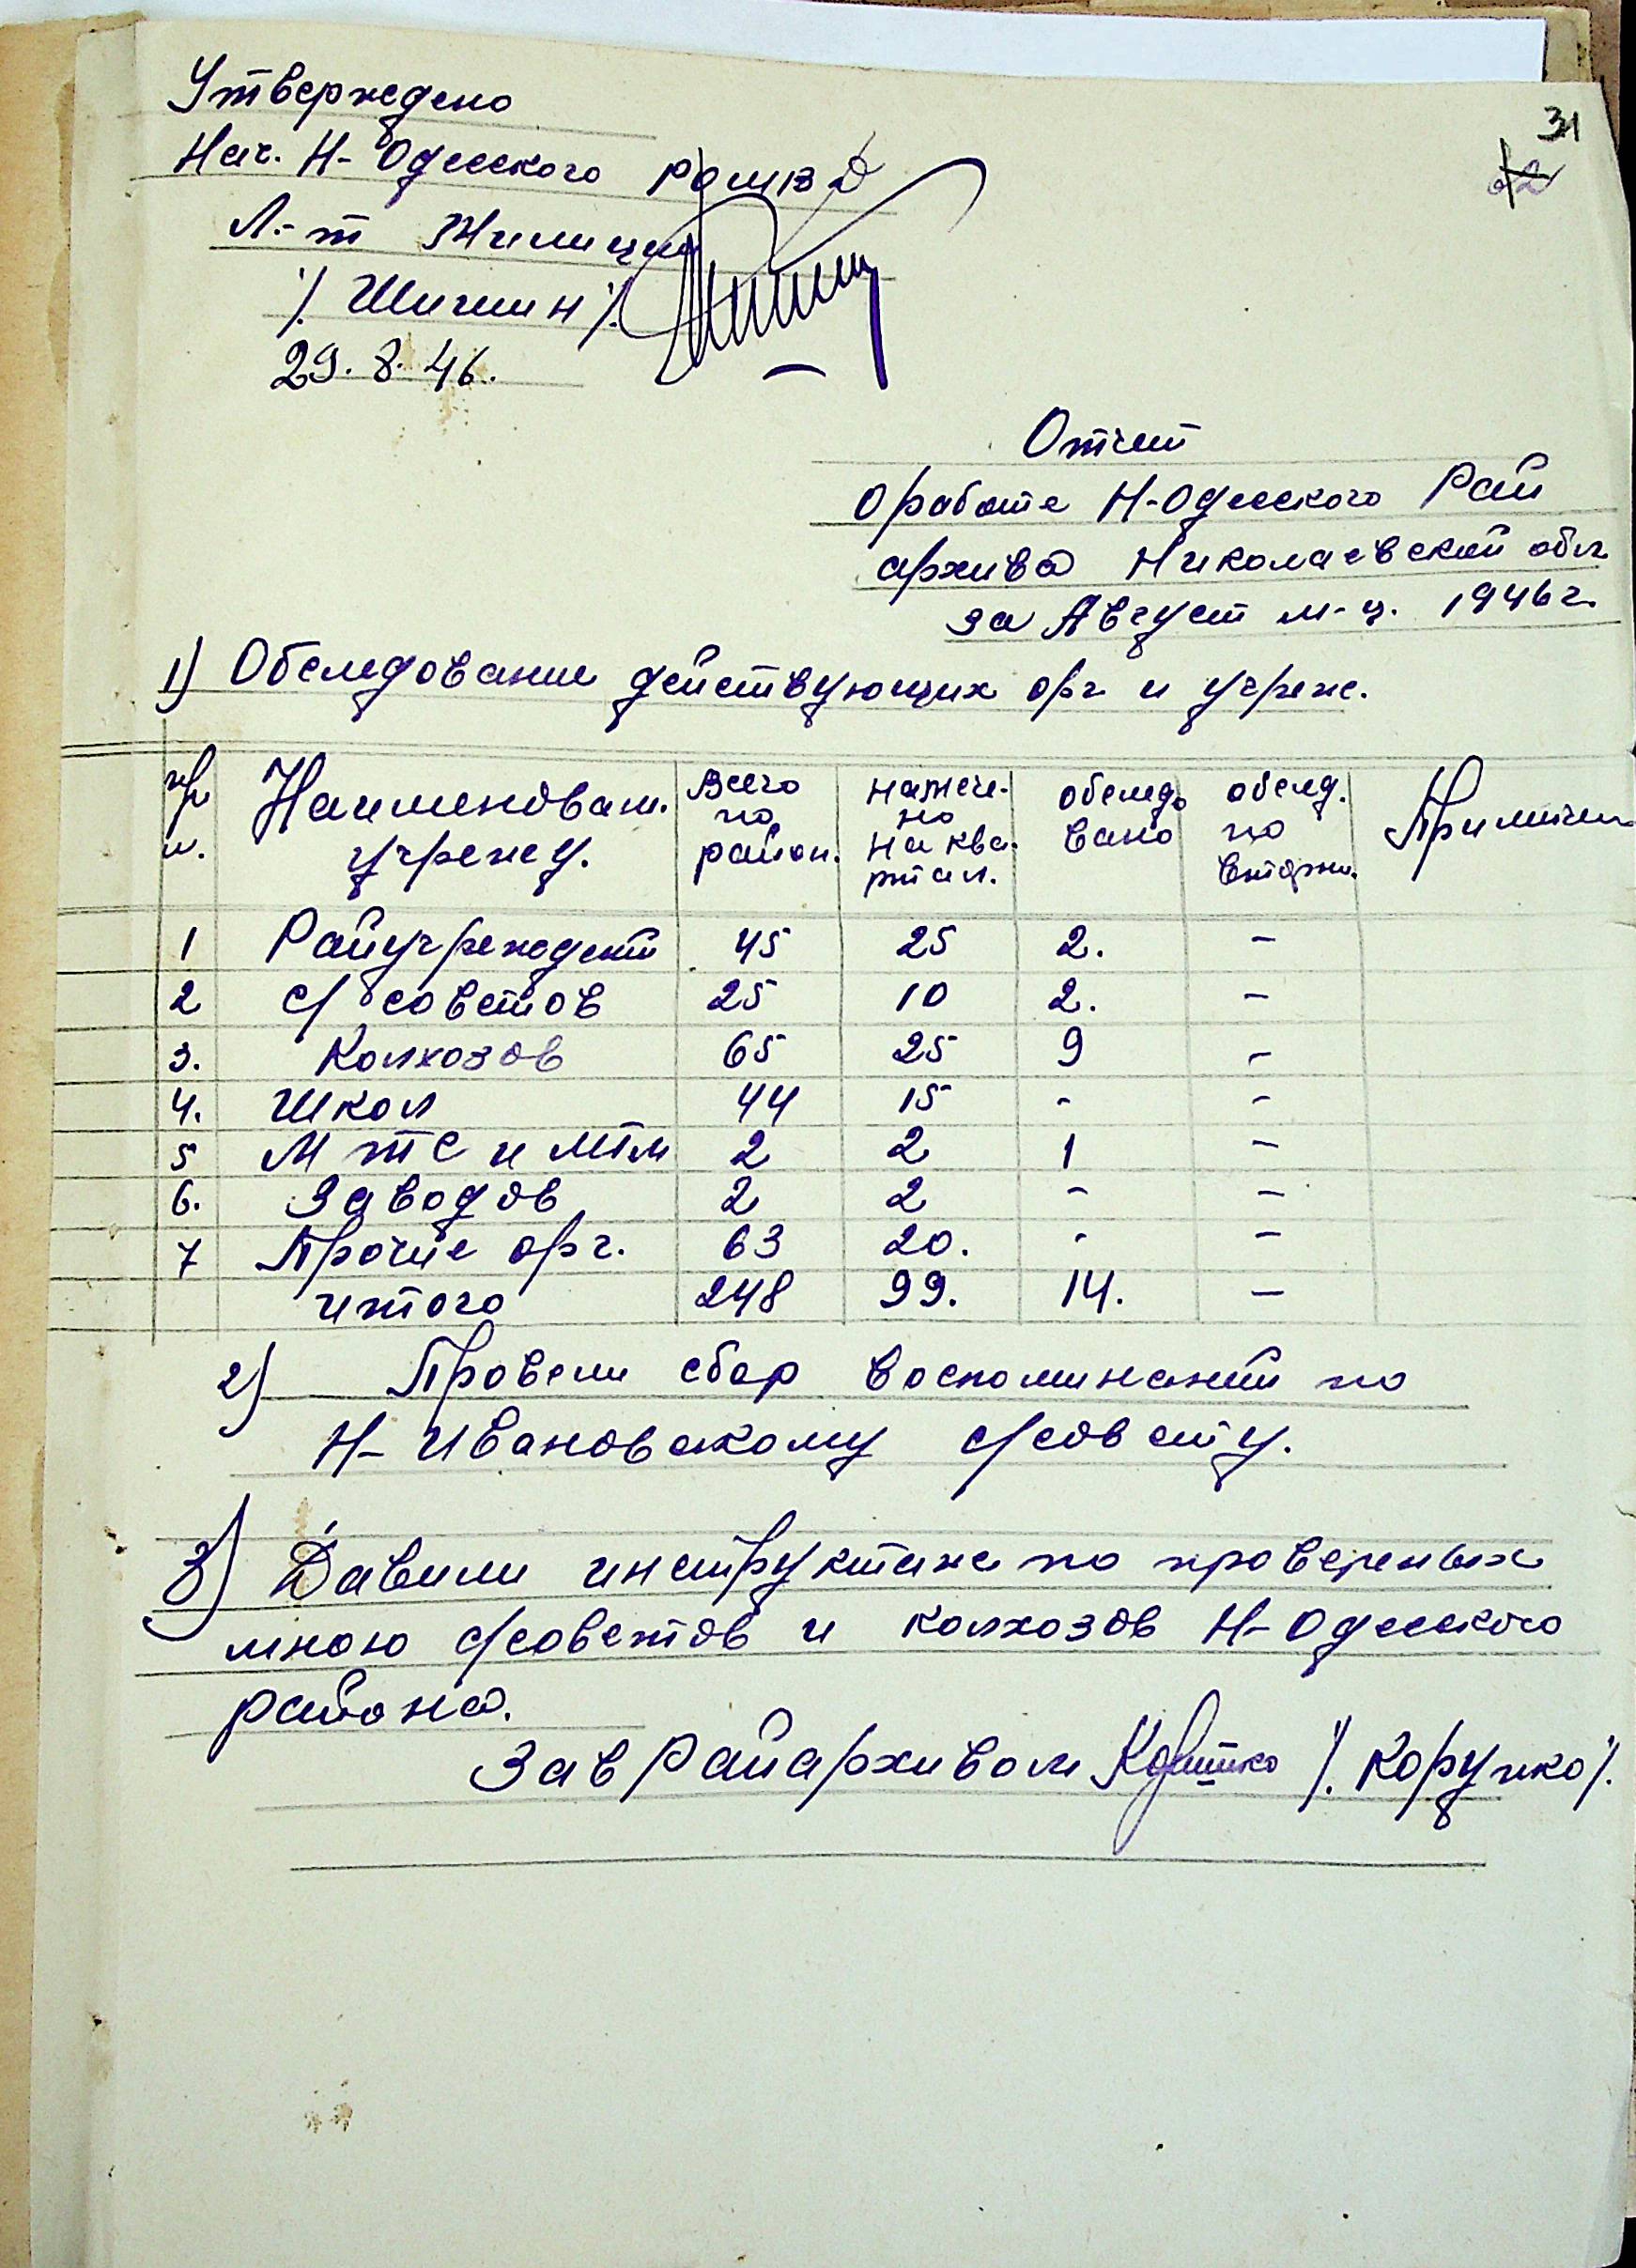 31
Утверждено
Нач. Н-Одесского РОМВД
Л.-т Милиции
/. Шишкин /.
29. 8. 46.
Отчет
О работе Н-Одесского Рай
архива Николаевской обл
за Август м-ц. 1946 г.
1) Обследование действующих орг и учреж.
п/п Наименован. учрежд. Всего по район. намече-но на ква-ртал. обследо вано обслед. по вторич. Примечан
1 Райучреждений 45 25 2. -
2 с/советов 25 10 2. -
3. Колхозов 65 25 9 -
4. Школ 44 15 - -
5 МТС и МТМ 2 2 1 -
6. Заводов 2 2 - -
7 Прочие орг. 63 20. - -
итого 248 99. 14. -
2) Провели сбор воспоминаний по
Н-Ивановскому с/совету.
3) Давали инструктаж по провереных
мною с/советов и колхозов Н-Одесского
района.
Зав Райархивом /. Коручко /.